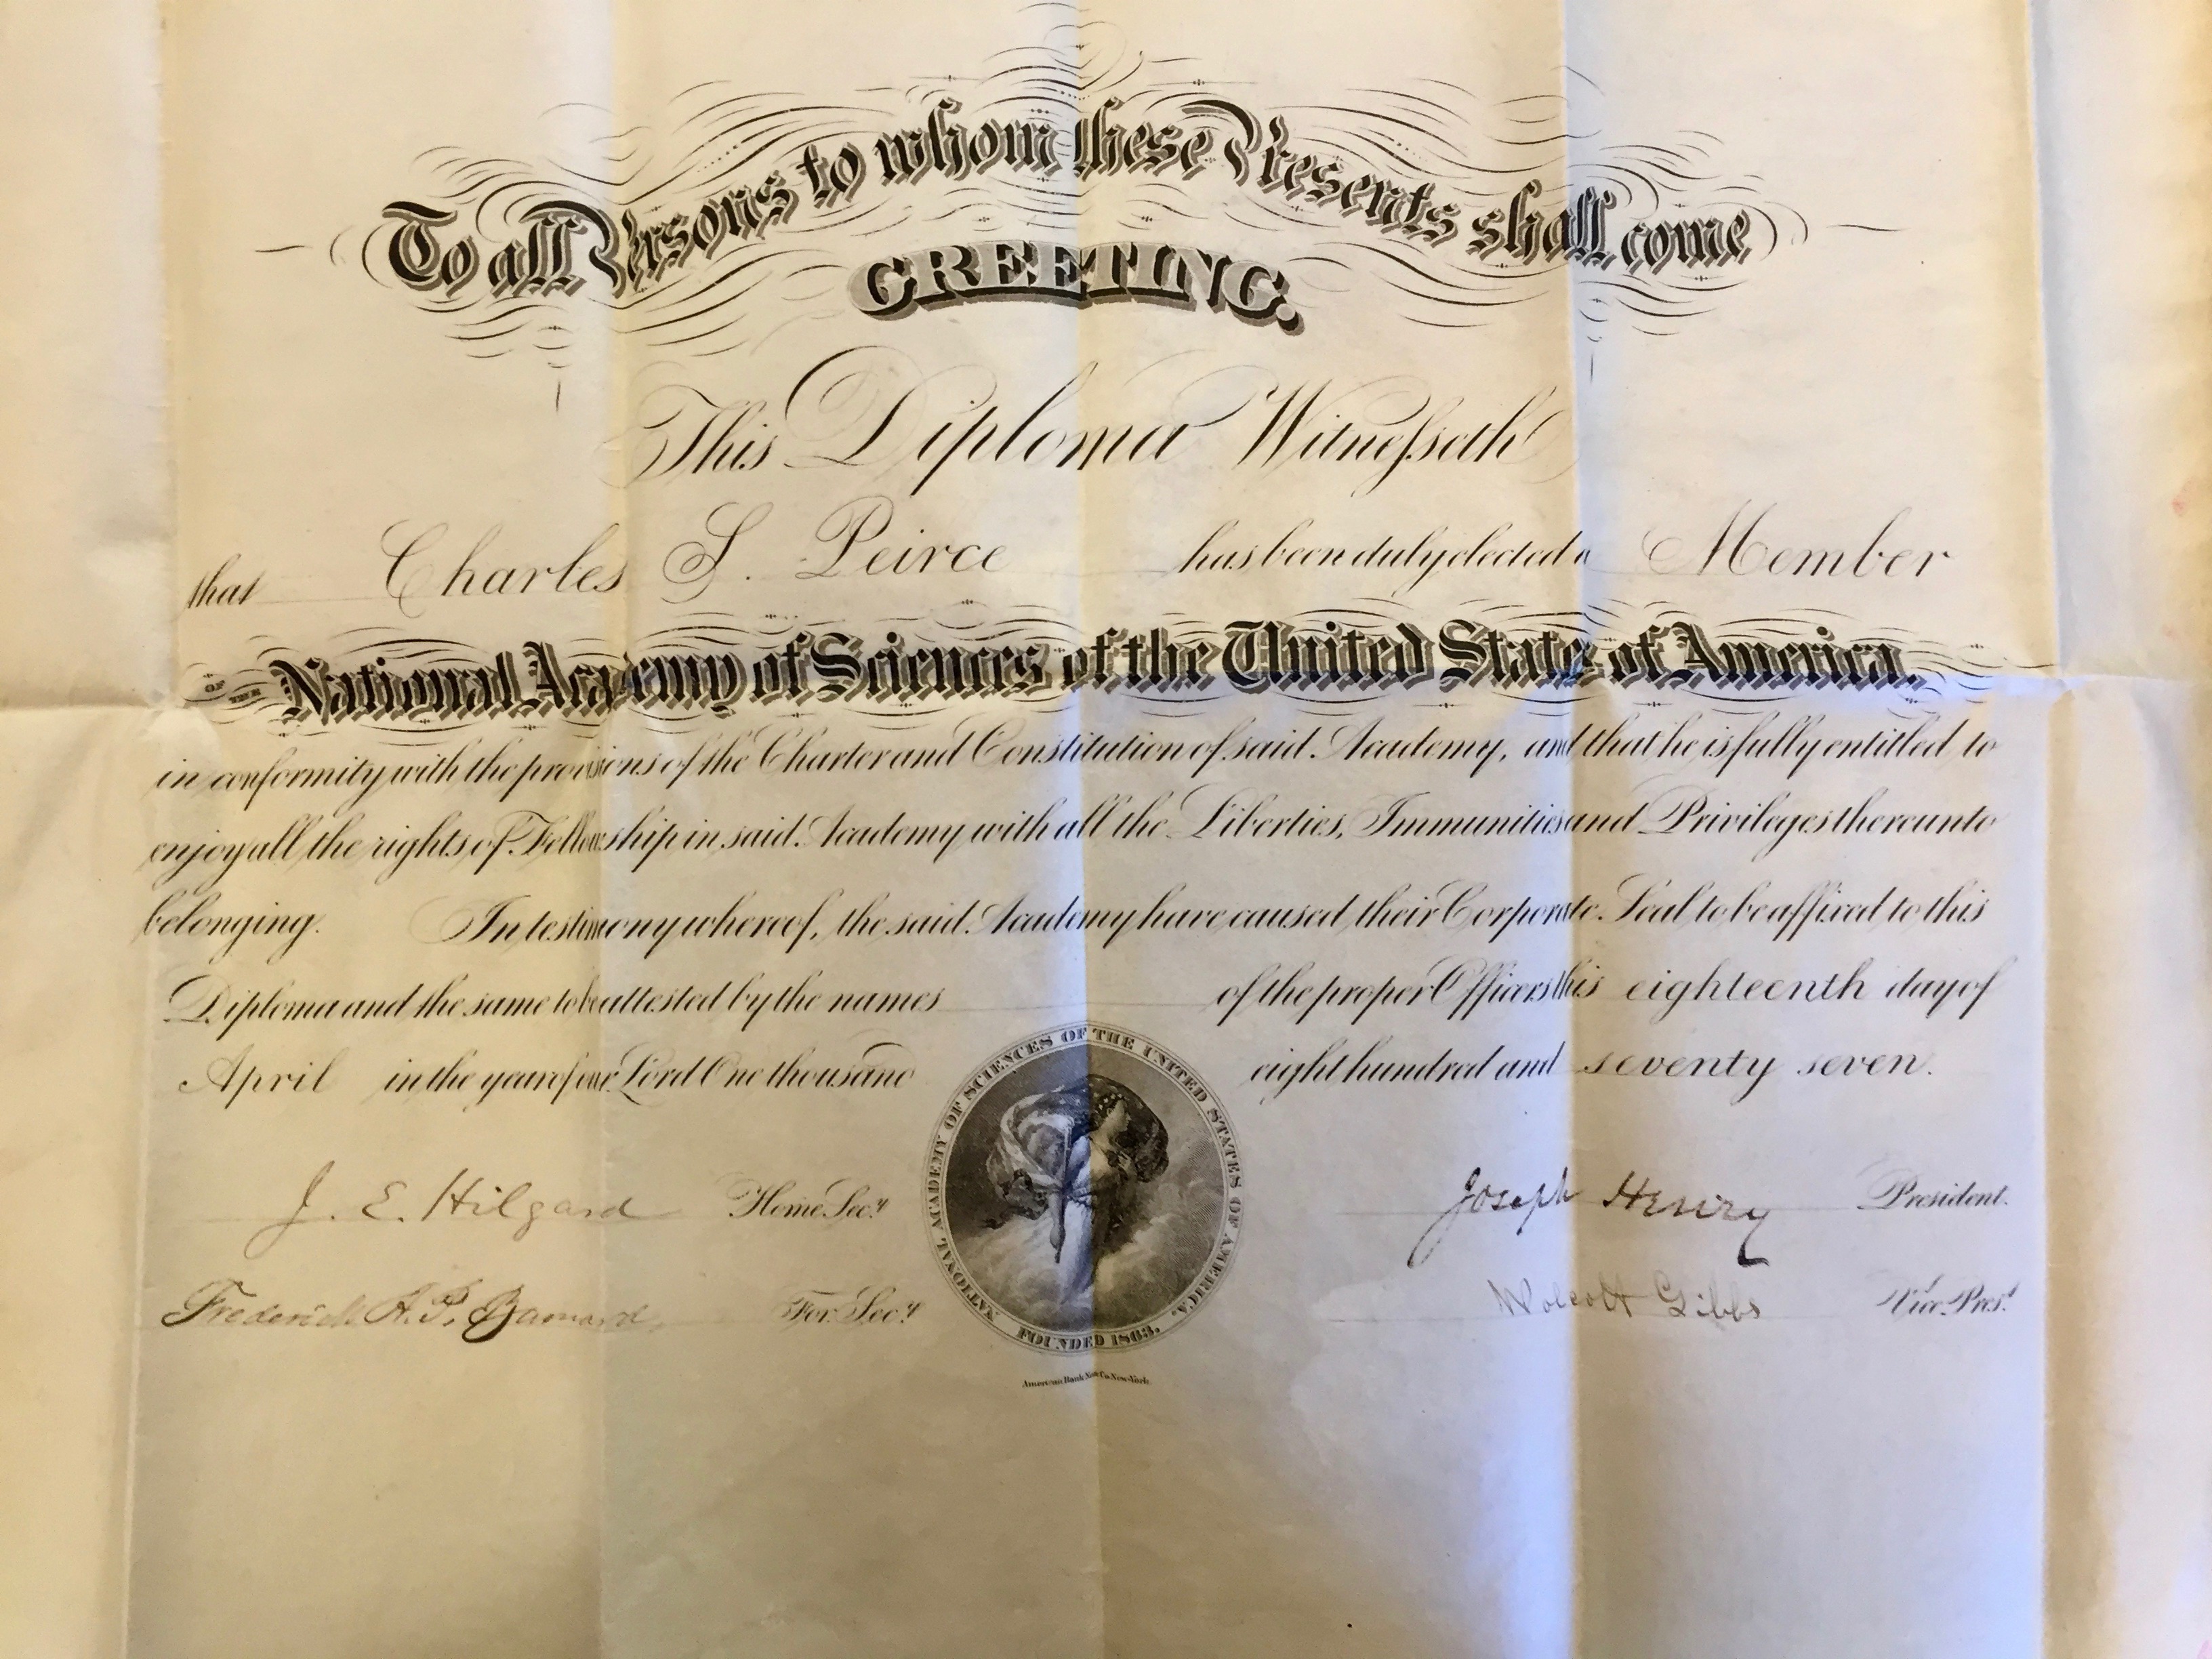 To all Persons to whom these Presents shall come
GREETING.
This Diploma Witnesseth
that Charles S. Peirce has been duly elected a Member
OF THE National Academy of Sciences of the United States of America.
in conformity with the provisions of the Charter and Constitution of said Academy, and that he is fully entitled to
enjoy all the rights of Fellowship in said Academy with all the Liberties, Immunities and Privileges thereunto
belonging. In testimony whereof, the said Academy have caused their Corporate Seal to be affixed to this
Diploma and the same to be attested by the names of the proper Officers this eighteenth day of
April in the year of our Lord One thousand eight hundred and seventy seven.
NATIONAL ACADEMY OF SCIENCES OF THE UNITED STATES OF AMERICA.
FOUNDED 1863.
J. E. Hilgard Home Secy Joseph Henry President.
Frederick A. P. Barnard, For. Secy Wolcott Gibbs Vice Prest
American Bank Note Co. New-York.